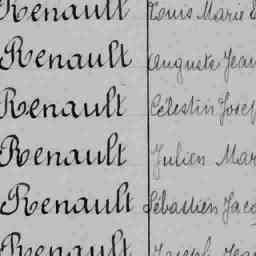 Renault Louis Marie
Renault Auguste Jean
Renault Célestin Josep
Renault Julien Mar
Renault Sébastien Jacq
Renault Joseph Jean